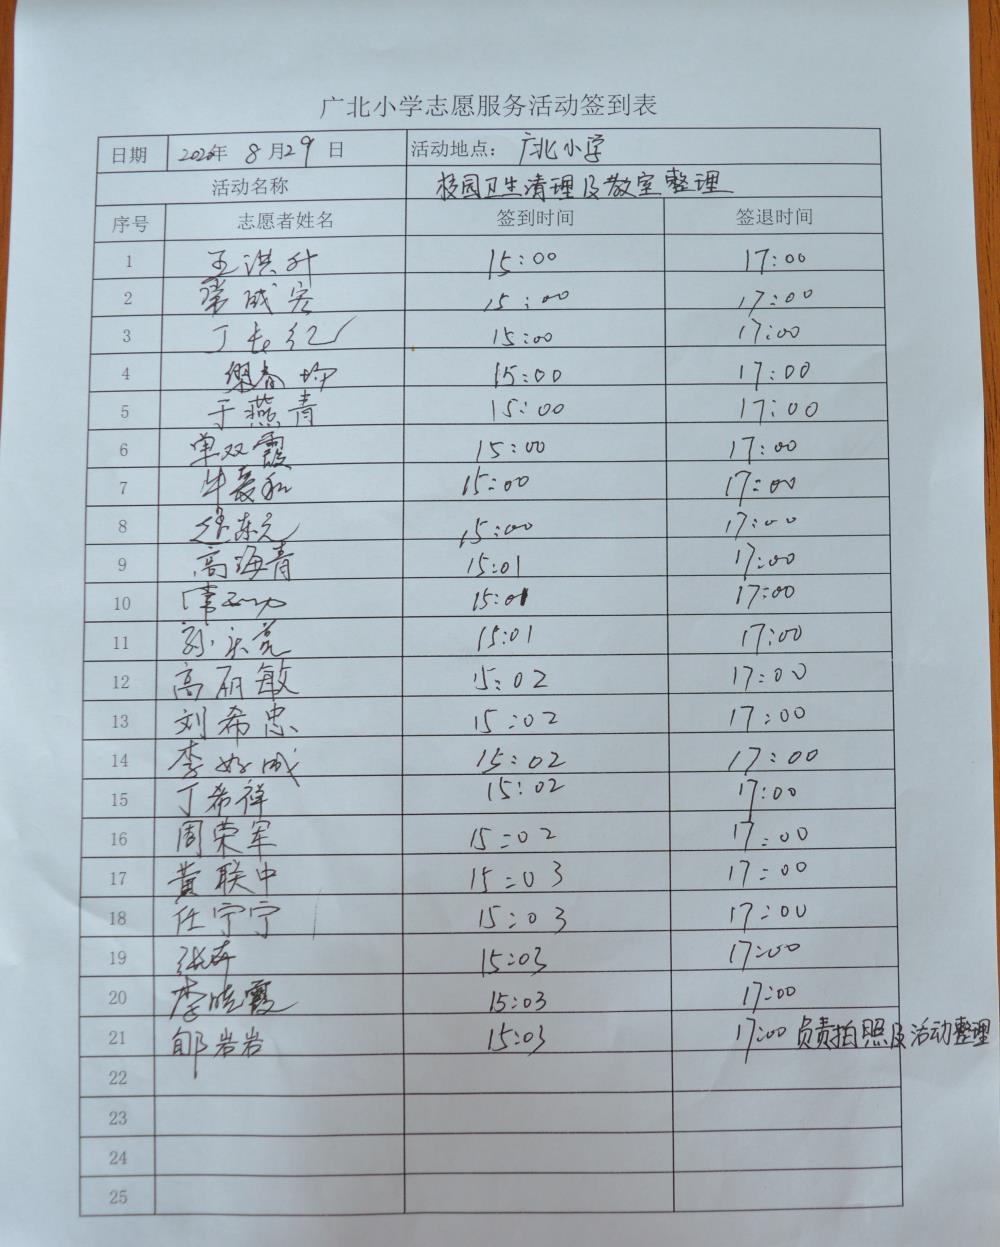 广北小学志愿服务活动签到表
日期 2020年 8月29日 活动地点： 广北小学
活动名称 校园卫生清理及教室整理
序号 志愿者姓名 签到时间 签退时间
1 王洪升 15:00 17:00
2 常成宏 15:00 17:00
3 丁长红 15:00 17:00
4 春 15:00 17:00
5 于燕青 15:00 17:00
6 单双霞 15:00 17:00
7 牛 15:00 17:00
8 徐东元 15:00 17:00
9 高海青 15:01 17:00
10 15:01 17:00
11 孙乐亮 15:01 17:00
12 高丽敏 15:02 17:00
13 刘希忠 15:02 17:00
14 李好成 15:02 17:00
15 丁希祥 15:02 17:00
16 周荣军 15:02 17:00
17 黄联中 15:03 17:00
18 任宁宁 15:03 17:00
19 张 15:03 17:00
20 李晓霞 15:03 17:00
21 郇岩岩 15:03 17:00 负责拍照及活动整理
22
23
24
25